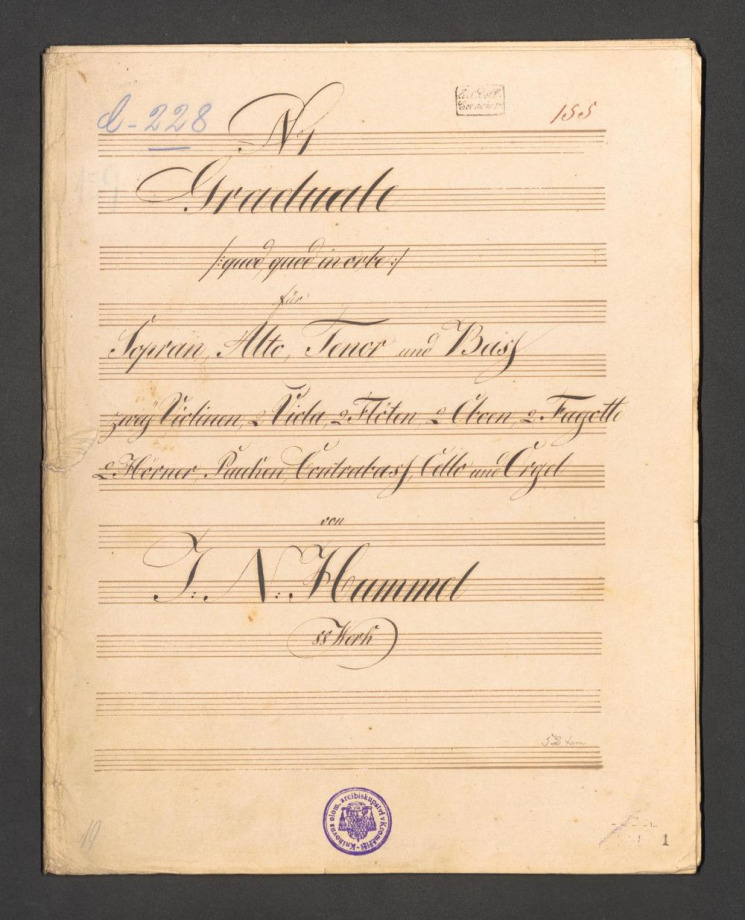 d-228
155
N 1
Graduale
/: quod quod in orbe :/
für
Sopran, Alto, Tenor und Bass
zwey Violinen, 2 Viola, 2 Flöten 2 Oboen, 2 Fagotti
2 Hörner, Pauken, Contrabass, Cello und Orgel
von
J: N: Hummel
88 Werk
Knihovna olom. arcibiskupství v Kroměříži
19
1